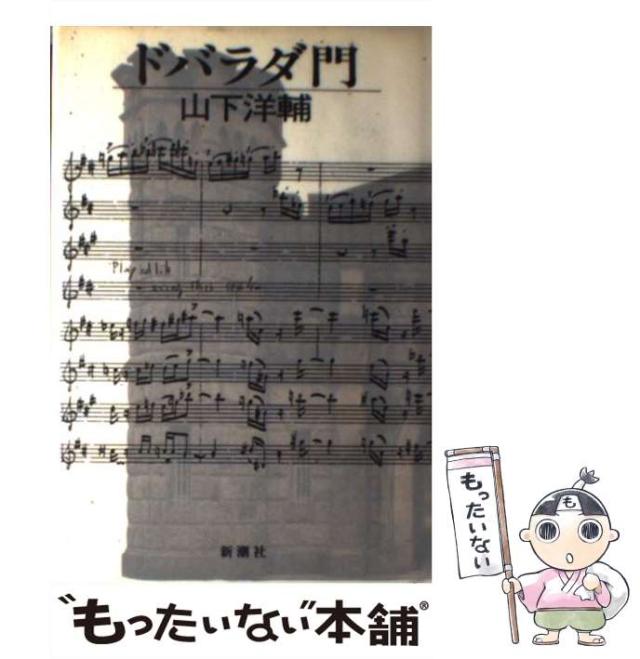 ドバラダ門
山下洋輔
Play ad lib
新潮社
もったいない
も
"もったいない"本舗®